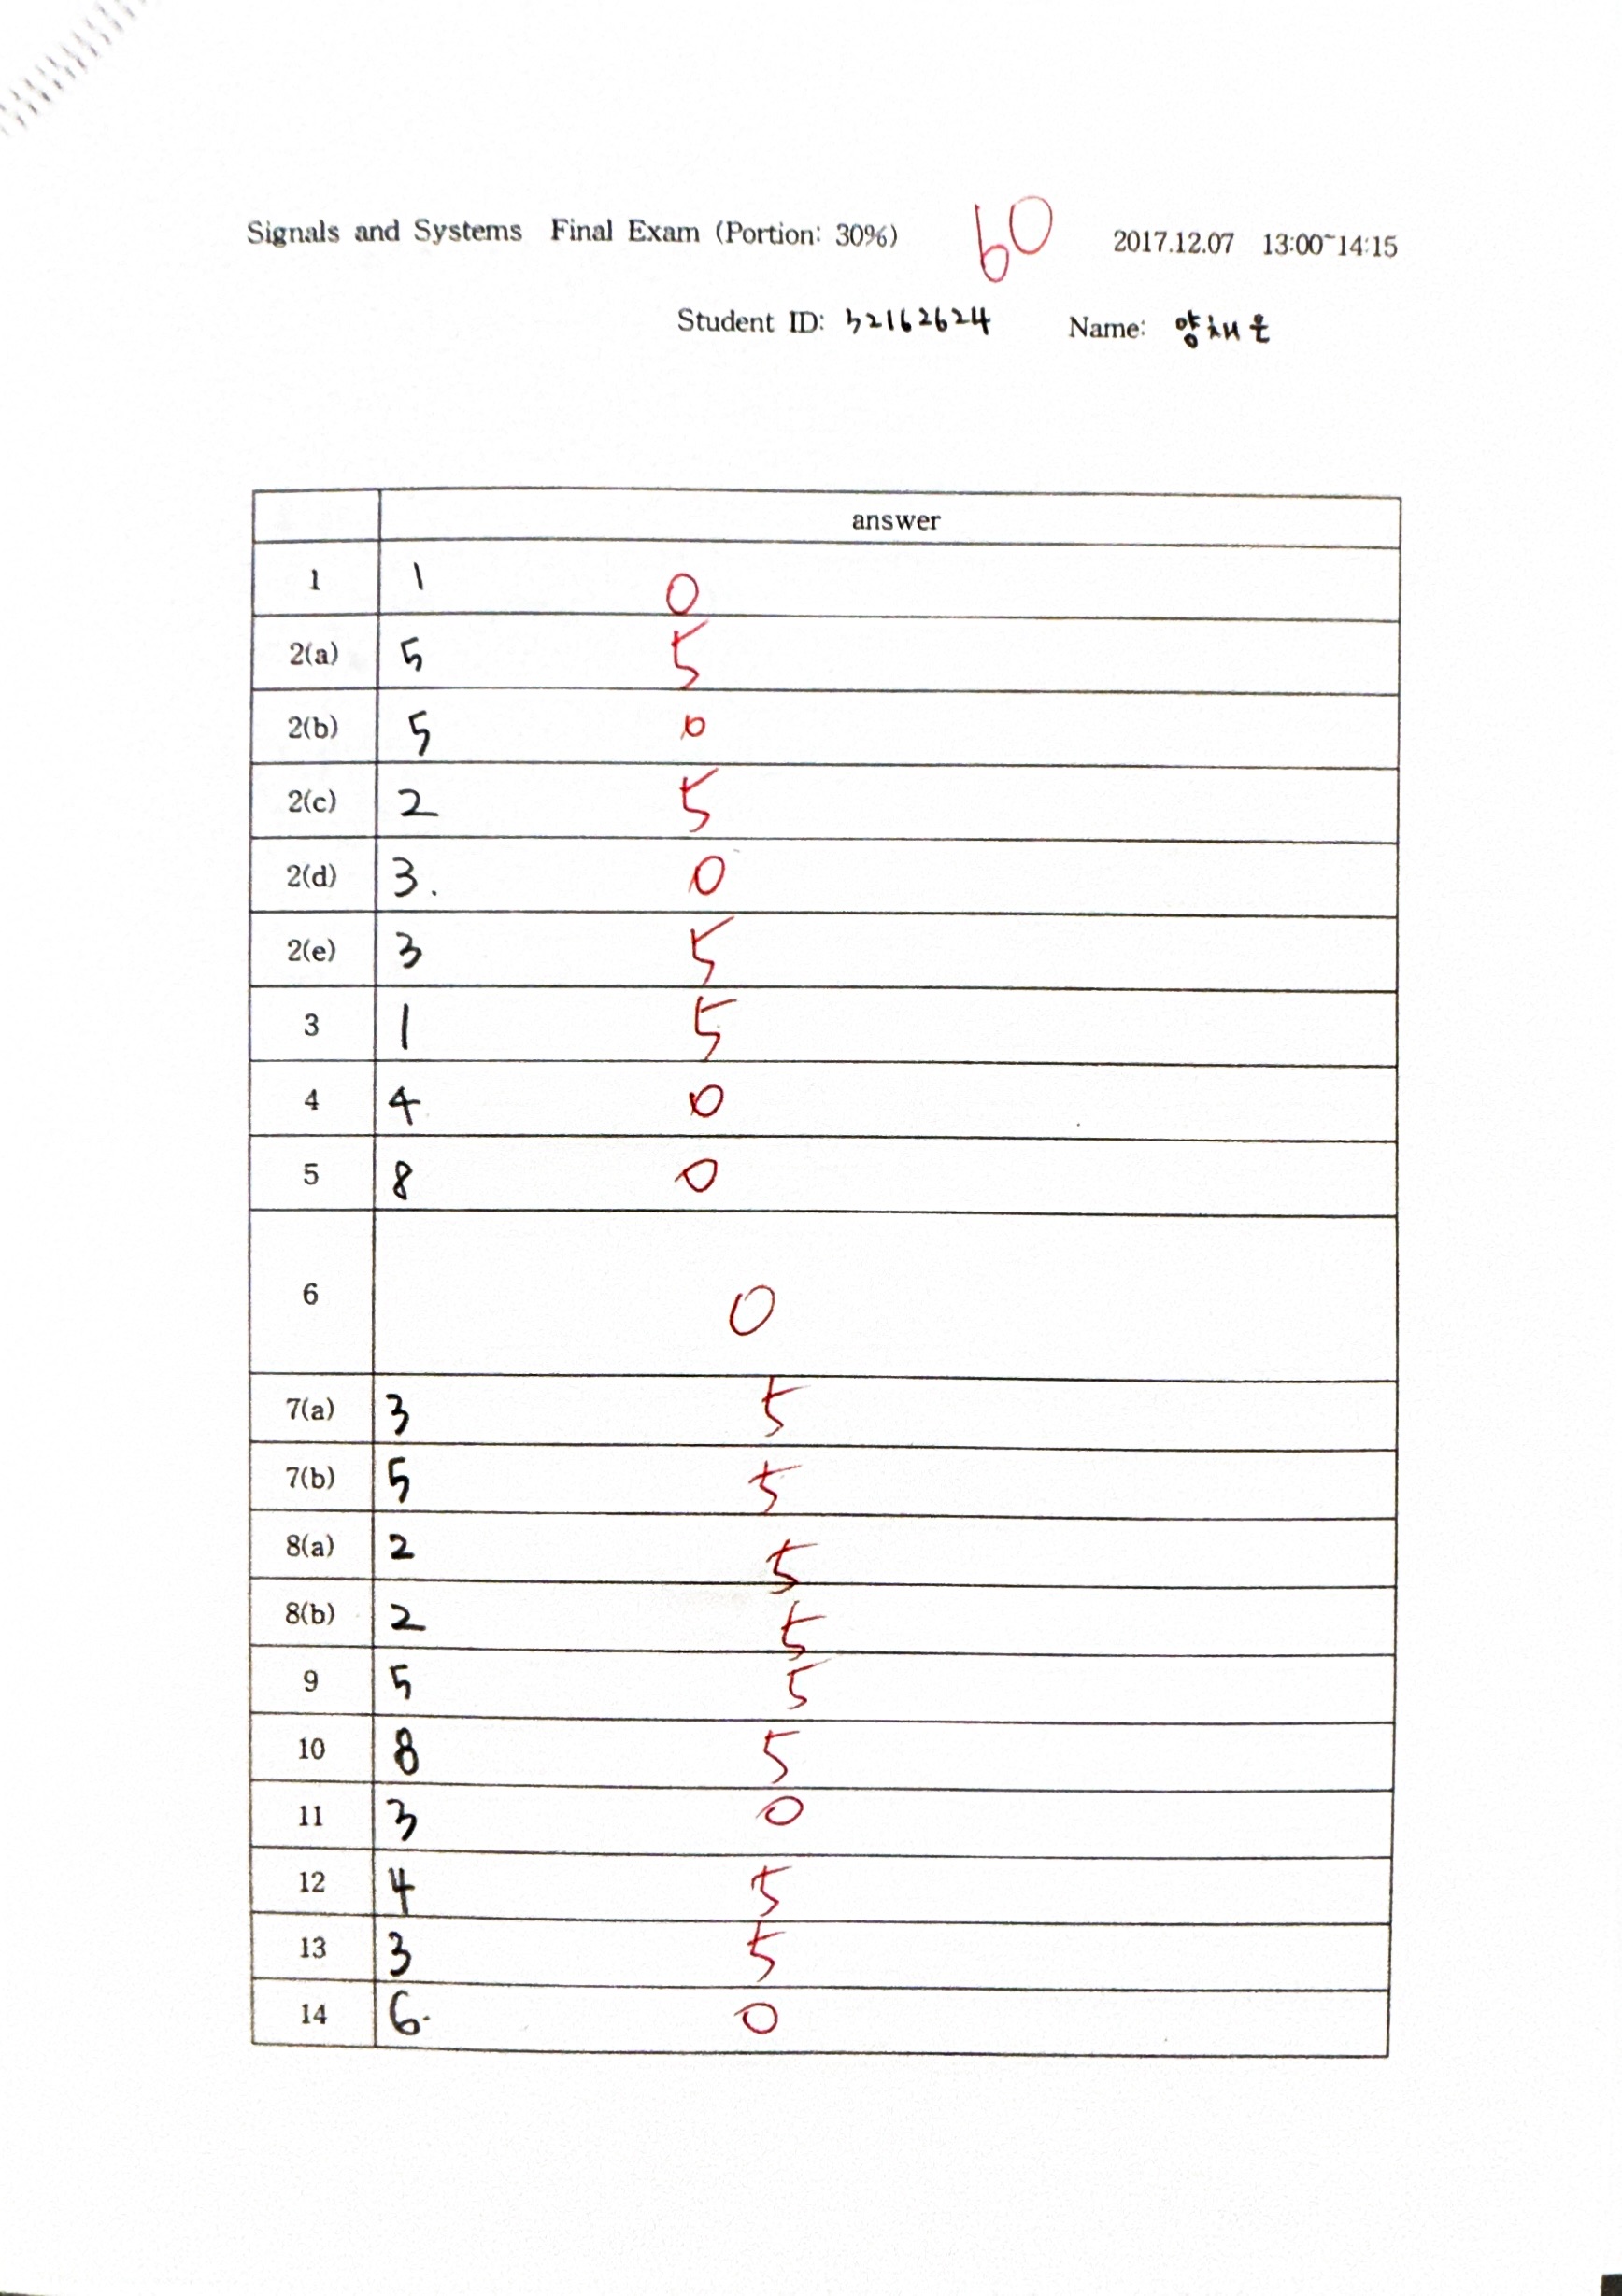 Signals and Systems Final Exam (Portion: 30%) 60 2017.12.07 13:00~14:15
Student ID: 32162624 Name: 양채운
answer
1 1 0
2(a) 5 5
2(b) 5 0
2(c) 2 5
2(d) 3. 0
2(e) 3 5
3 1 5
4 4 0
5 8 0
6 0
7(a) 3 5
7(b) 5 5
8(a) 2 5
8(b) 2 5
9 5 5
10 8 5
11 3 0
12 4 5
13 3 5
14 6. 0